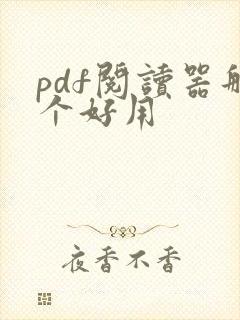 pdf閱讀器
个好用
夜香不香